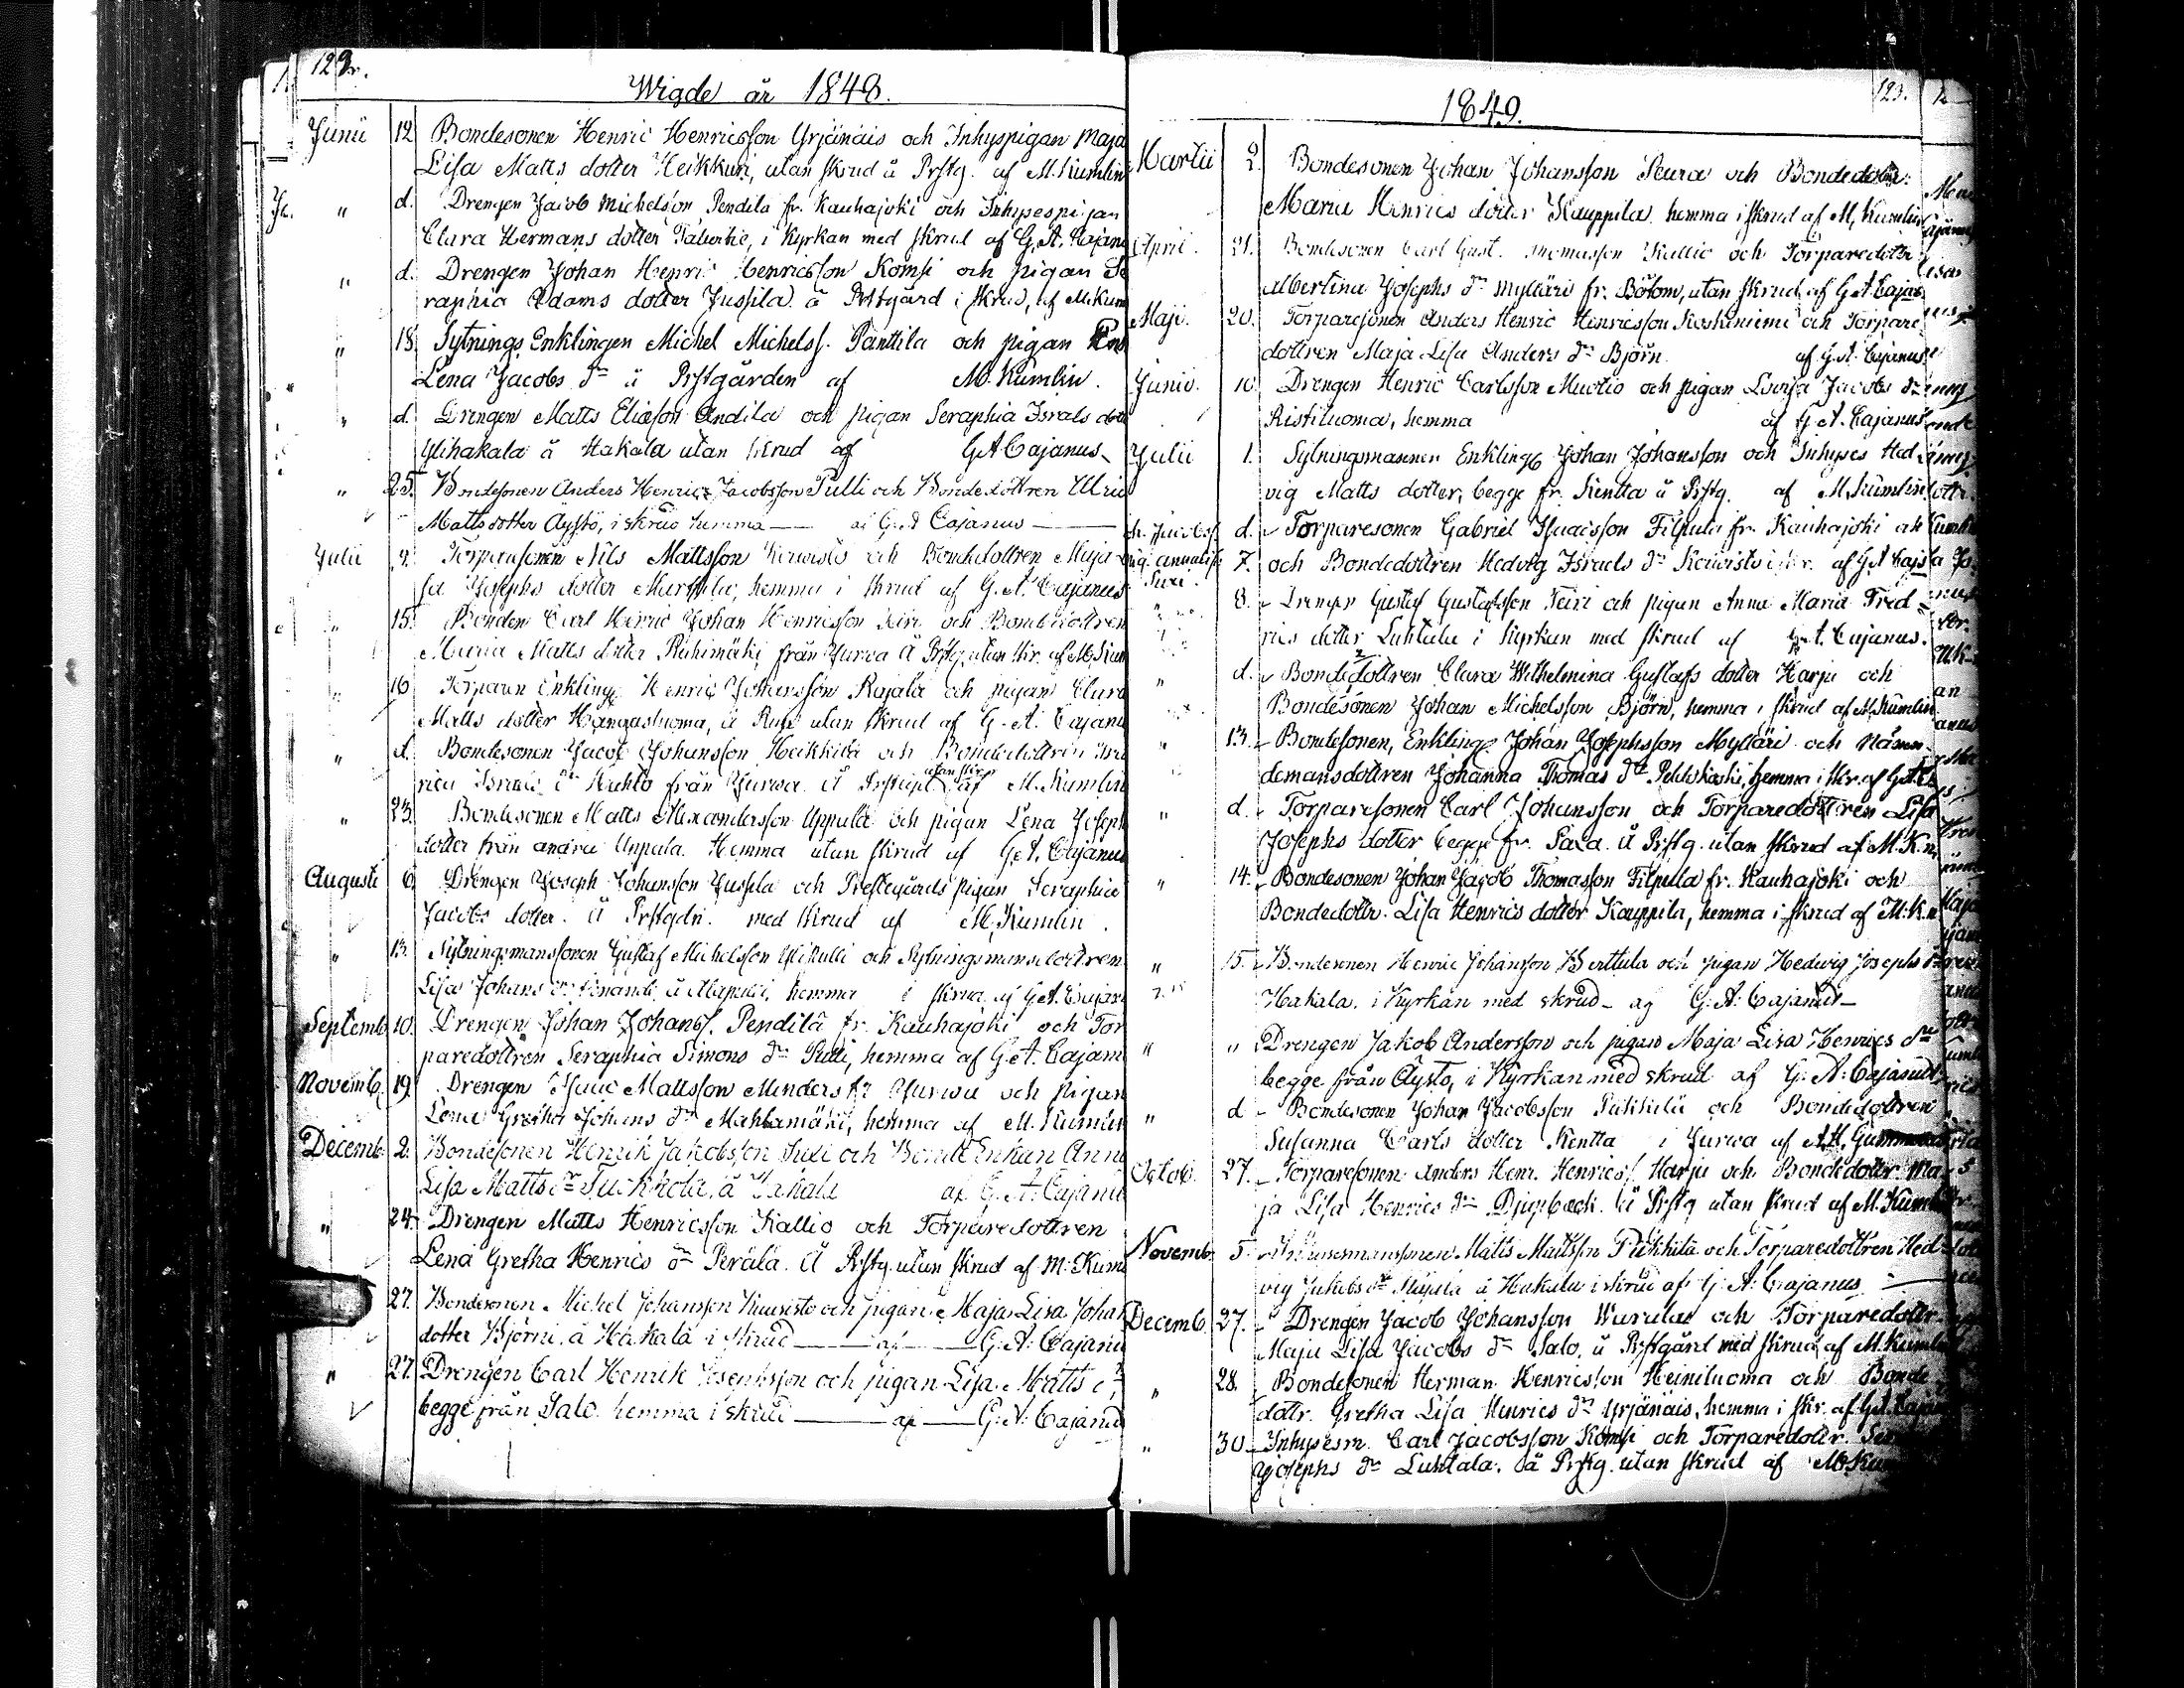 122v.
Wigde år 1848.
Junii 12 Bondesonen Henric Henricsson Yrjänäis och Inhyspigan Maja
Lisa Matts dotter Heikkuri, utan skrud å Prstg. af M. Kumlin
" d. Drengen Jacob Michelsson Pendila fr. Kauhajoki och Inhysespigan
Clara Hermans dotter, i Kyrkan med skrud af G. A. Cajanu
" d. Drengen Johan Henric Henricsson Komsi och pigan Se
raphia Adams dotter Jussila å Prstgård i skrud, af M. Kum
" 18. Sytnings Enklingen Michel Michelss. Panttila och pigan
Lena Jacobs dr å Prstgården af M. Kumlin.
" d. Drengen Matts Eliæson Andila och pigan Seraphia Israls dott
Ylihakala å Hakala utan skrud af G A Cajanus
" 25. Bondesonen Anders Henric Jacobsson Pulli och Bondedottren Ulric
Matts dotter Äystö, i skrud hemma — af G. A Cajanus —
Julii 9. Torparesonen Nils Mattsson Koivisto och Bondedottren Maja Li
sa Josephs dotter, hemma i skrud af G. A. Cajanus
" 15. Bonden Carl Henric Johan Henricsson Teiri och Bondedottren
Maria Matts dotter Riihimäki från Jurva å Prstg. utan skr. af M. Kum
" 16 Torparen Enkling Henric Johansson Rajala och pigan Clara
Matts dotter Hangasluoma, å utan skrud af G. A. Cajanu
" d. Bondesonen Jacob Johansson Heikkilä och Bondedottren Ul
rica Israels dr från Jurva. å utan skr. af M. Kumlin
" 23. Bondesonen Matts Alexandersson Uppulla och pigan Lena Joseph
dotter från andra Uppula. Hemma utan skrud af G. A. Cajanus
Augusti 6 Drengen Joseph Johansson Jussila och Prestegårds pigan Seraphia
Jacobs dotter. å Prstgdn. med skrud af M. Kumlin.
" 13. Sytningsmanssonen Gustaf Michelsson Ylikulli och Sytningsmansdottren
Lisa Johans dr, hemma i skrud af G. A. Cajan
Septemb. 10. Drengen Johan Johanss. Pendilä fr. Kauhajoki och Tor
paredottren Seraphia Simons dr Pulli, hemma af G. A. Cajan
Novemb. 19. Drengen Isaac Mattsson Minders fr Jurwa och pigan
Lena Gretha Johans dr Mahlamäki, hemma af M. Kumlin
Decemb. 2. Bondesonen Henrik Jakobsson Susi och Bonde Enkan Ann
Lisa Matts dr, å Hakala af G. A. Cajanu
" 24. Drengen Matts Henricsson Kallio och Torparedottren
Lena Gretha Henrics dr Perälä. å Prstg. utan skrud af M. Kum
27. Bondesonen Michel Johansson Kuusisto och pigan Maja Lisa Johan
dotter Björni å Hakala i skrud — af — G. A. Cajanu
" 27. Drengen Carl Henrik Josephsson och pigan Lisa Matts dr,
begge från Salo. hemma i skrud — af — G. A. Cajanu
123.
1849.
Martii 2. Bondesonen Johan Johansson Peura och Bondedottr.
Maria Henrics dotter Kauppila hemma i skrud af M. Kumlin
April. 21. Bondesonen Carl Gust. Thomasson Kallio och Torparedottr
Albertina Josephs dr Mylläri fr. Bötom, utan skrud, af G A Cajan
Maji. 20. Torparesonen Anders Henric Henricsson Koskiniemi och Torpare
dottren Maja Lisa Anders dr Björn af G. A. Cajanus
Junii. 10. Drengen Henric Carlsson Muotio och pigan Lovisa Jacobs dr
Ristiluoma, hemma af G. A. Cajanus
Julii 1. Sytningsmannen Enkling Johan Johansson och Inhyses Hed
vig Matts dotter, begge fr. Kentta å Prstg. af M. Kumlin
d. Torparesonen Gabriel Isacsson Filpula fr. Kauhajoki
7. och Bondedottren Hedvig Israels dr Koivisto i skr. af G A Caj
8. Drengen Gustaf Gustafsson Teiri och pigan Anna Maria Fred
rics dotter Luhtala i Kyrkan med skrud af G. A. Cajanus.
" d. Bondedottren Clara Wilhelmina Gustafs dotter Harju och
Bondesonen Johan Michelsson Björn, hemma i skrud af M. Kumlin
" 13. Bondesonen, Enkling Johan Josephsson Myllärı och Nämn
demansdottren Johanna Thomas dr, hemma i skr. af G. A. C
" d. Torparesonen Carl Johansson och Torparedottren Lisa
Josephs dotter begge fr. Sara. å Prstg. utan skrud af M. K.
" 14. Bondesonen Johan Jacob Thomasson Filpula fr. Kauhajoki och
Bondedottr. Lisa Henrics dotter Kauppila, hemma i skrud af M. K.
" 15. Bondesonen Henric Johansson Berttula och pigan Hedwig Josephs dr
Hakala. i Kyrkan med skrud - af G. A. Cajanus
" " Drengen Jakob Andersson och pigan Maja Lisa Henrics dr
begge från Äystö, i Kyrkan med skrud af G. A. Cajanus
" d Bondesonen Johan Jacobsson Pukkila och Bondedottren
Susanna Carls dotter Kentta i Jurva af
Octob. 27. Torparesonen Anders Henr. Henricss. Harju och Bondedottr. Ma
ja Lisa Henrics dr Djupbäck. å Prstg utan skrud af M. Kum
Novemb. 5. Matts Mattsson Pukkila och Torparedottren Hed
vig Jakobs dr å Hakala i skrud af G. A. Cajanus
Decemb. 27. Drengen Jacob Johansson och Torparedottr.
Maja Lisa Jacobs dr Salo, å Prstgård med skrud, af M. Kumlin
" 28. Bondesonen Herman Henricsson Heiniluoma och Bonde
dottr. Gretha Lisa Henrics dr Yrjänäis, hemma i skr. af G A. Caj
" 30. Inhysesm. Carl Jacobsson Komsi och Torparedottr. Se
Josephs dr Luhtala. å Prstg. utan skrud af M. Kum